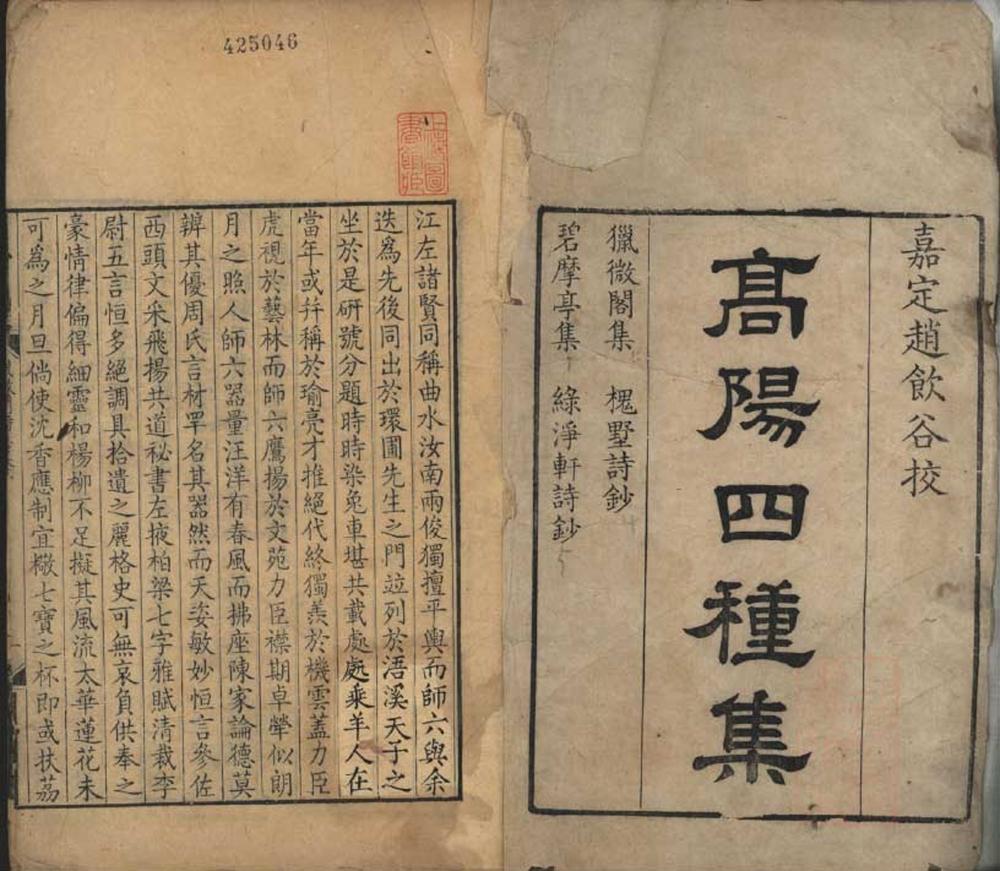 嘉定趙飲谷挍
高陽四種集
獵微閣集　槐墅詩鈔
碧摩亭集　綠淨軒詩鈔
425046
江左諸賢同稱曲水汝南兩俊獨擅平輿而師六與余
迭爲先後同出於環圃先生之門竝列於浯溪天子之
坐於是研號分題時時染兔車堪共載處處乘羊人在
當年或并稱於瑜亮才推絕代終獨羨於機雲蓋力臣
虎視於藝林而師六鷹揚於文苑力臣襟期卓犖似朗
月之照人師六器量汪洋有春風而拂座陳家論德莫
辨其優周氏言材罕名其器然而天姿敏妙恒言參佐
西頭文采飛揚共道秘書左掖柏梁七字雅賦清裁李
尉五言恒多絕調具拾遺之麗格史可無哀負供奉之
豪情律偏得細靈和楊柳不足擬其風流太華蓮花未
可爲之月旦倘使沈香應制宜橄七寶之杯即或扶荔